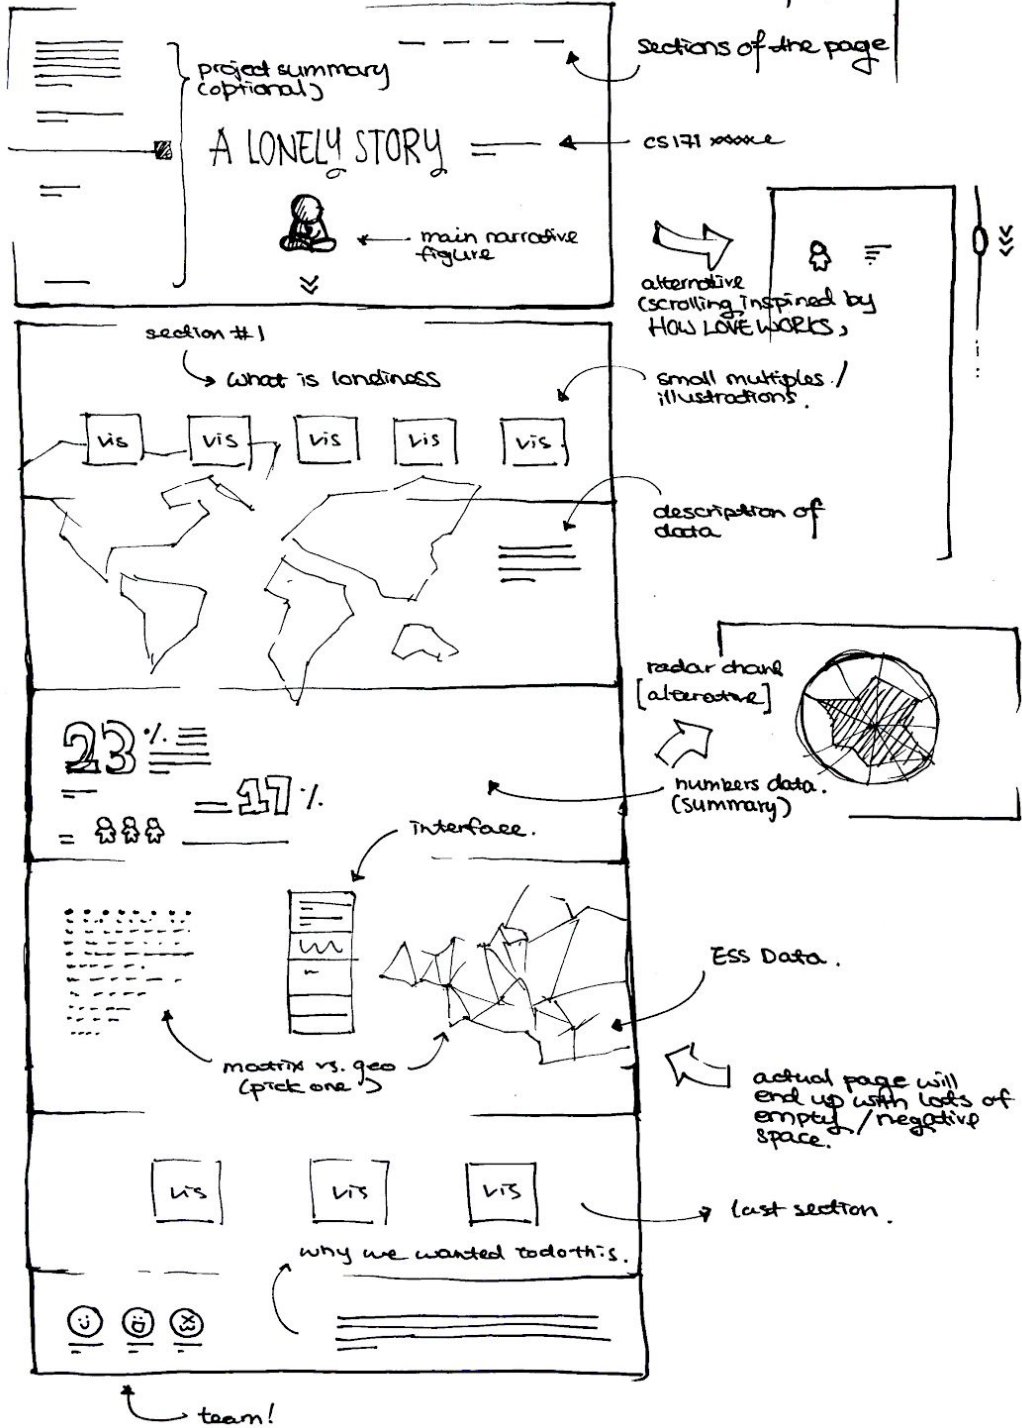 sections of the page
project summary
(optional)
A LONELY STORY
CS171
main narrative
figure
alternative
(scrolling inspired by
HOW LOVE WORKS)
section #1
What is loneliness
small multiples /
illustrations.
vis
vis
vis
vis
vis
description of
data
radar chart
[alternative]
23 %
17 %
numbers data.
(summary)
interface.
ESS Data.
matrix vs. geo
(pick one)
actual page will
end up with lots of
empty / negative
space.
vis
vis
vis
last section.
why we wanted to do this.
team!